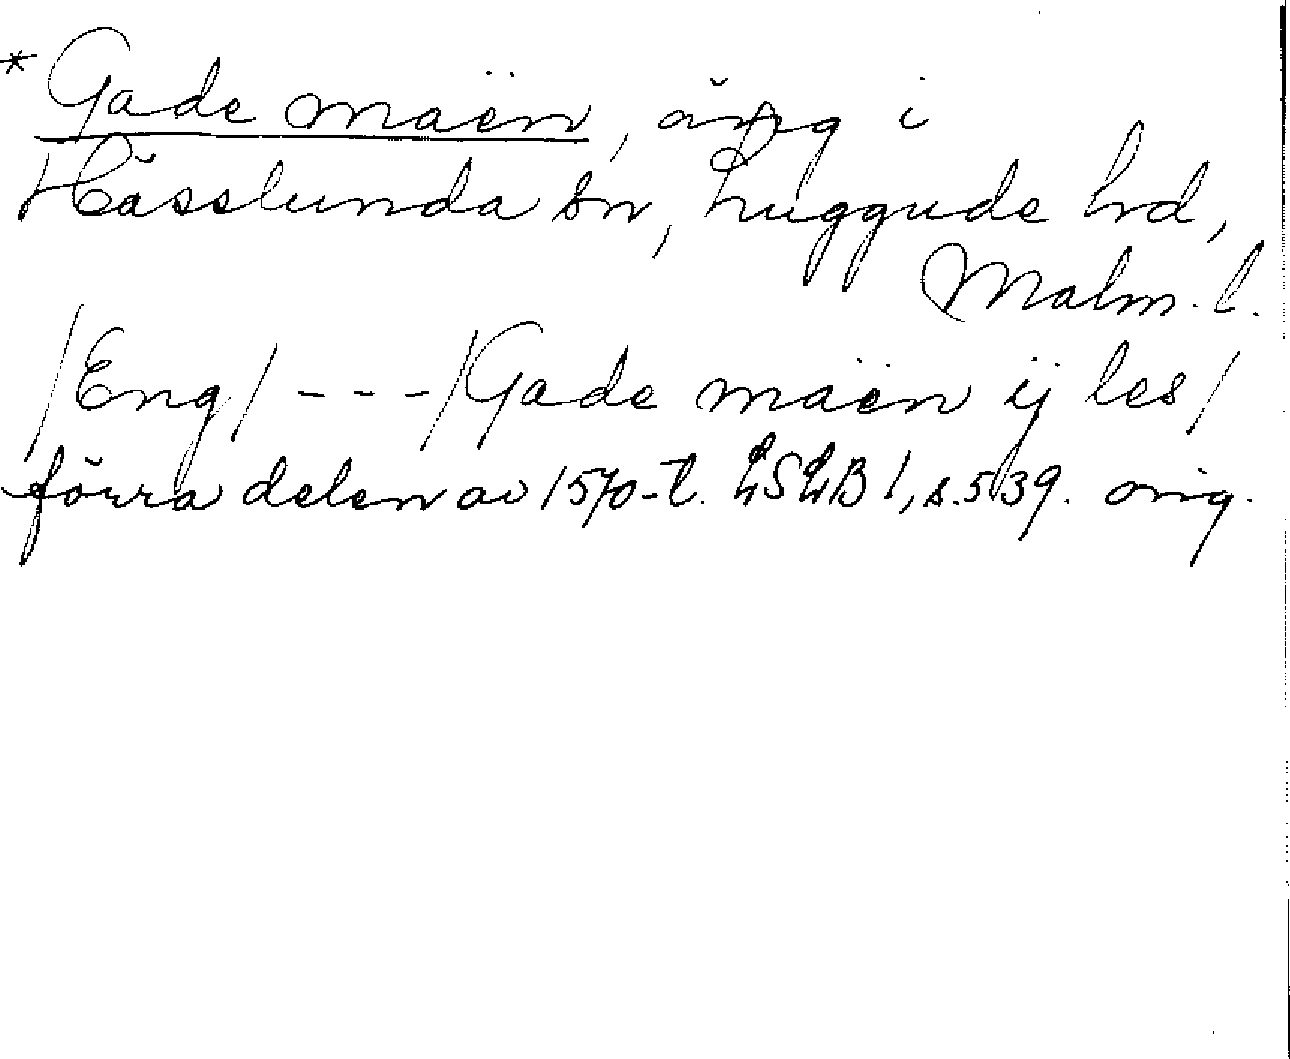 * Gade maën, äng i
Hässlunda sn, Luggude hd,
Malm. l.
/Eng/ - - - /Gade maën ij les/
förra delen av 1570-t. LSLB I, s. 539. orig.